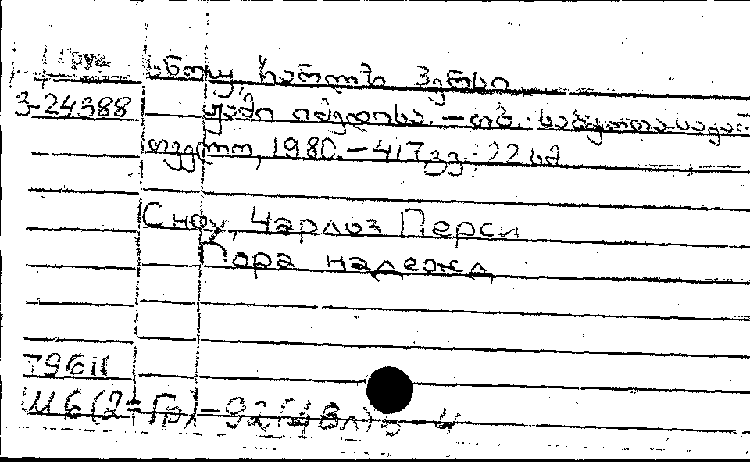 Груз
სნოუ, ჩარლზ პერსი
3-24388 ჟამი იმედისა. – თბ.: საბჭოთა საქარ
თველო, 1980. – 417 გვ.; 22 სმ
Сноу, Чарлз Перси
Пора надежд
И6(2=Гр)-92(4Вл)5-4